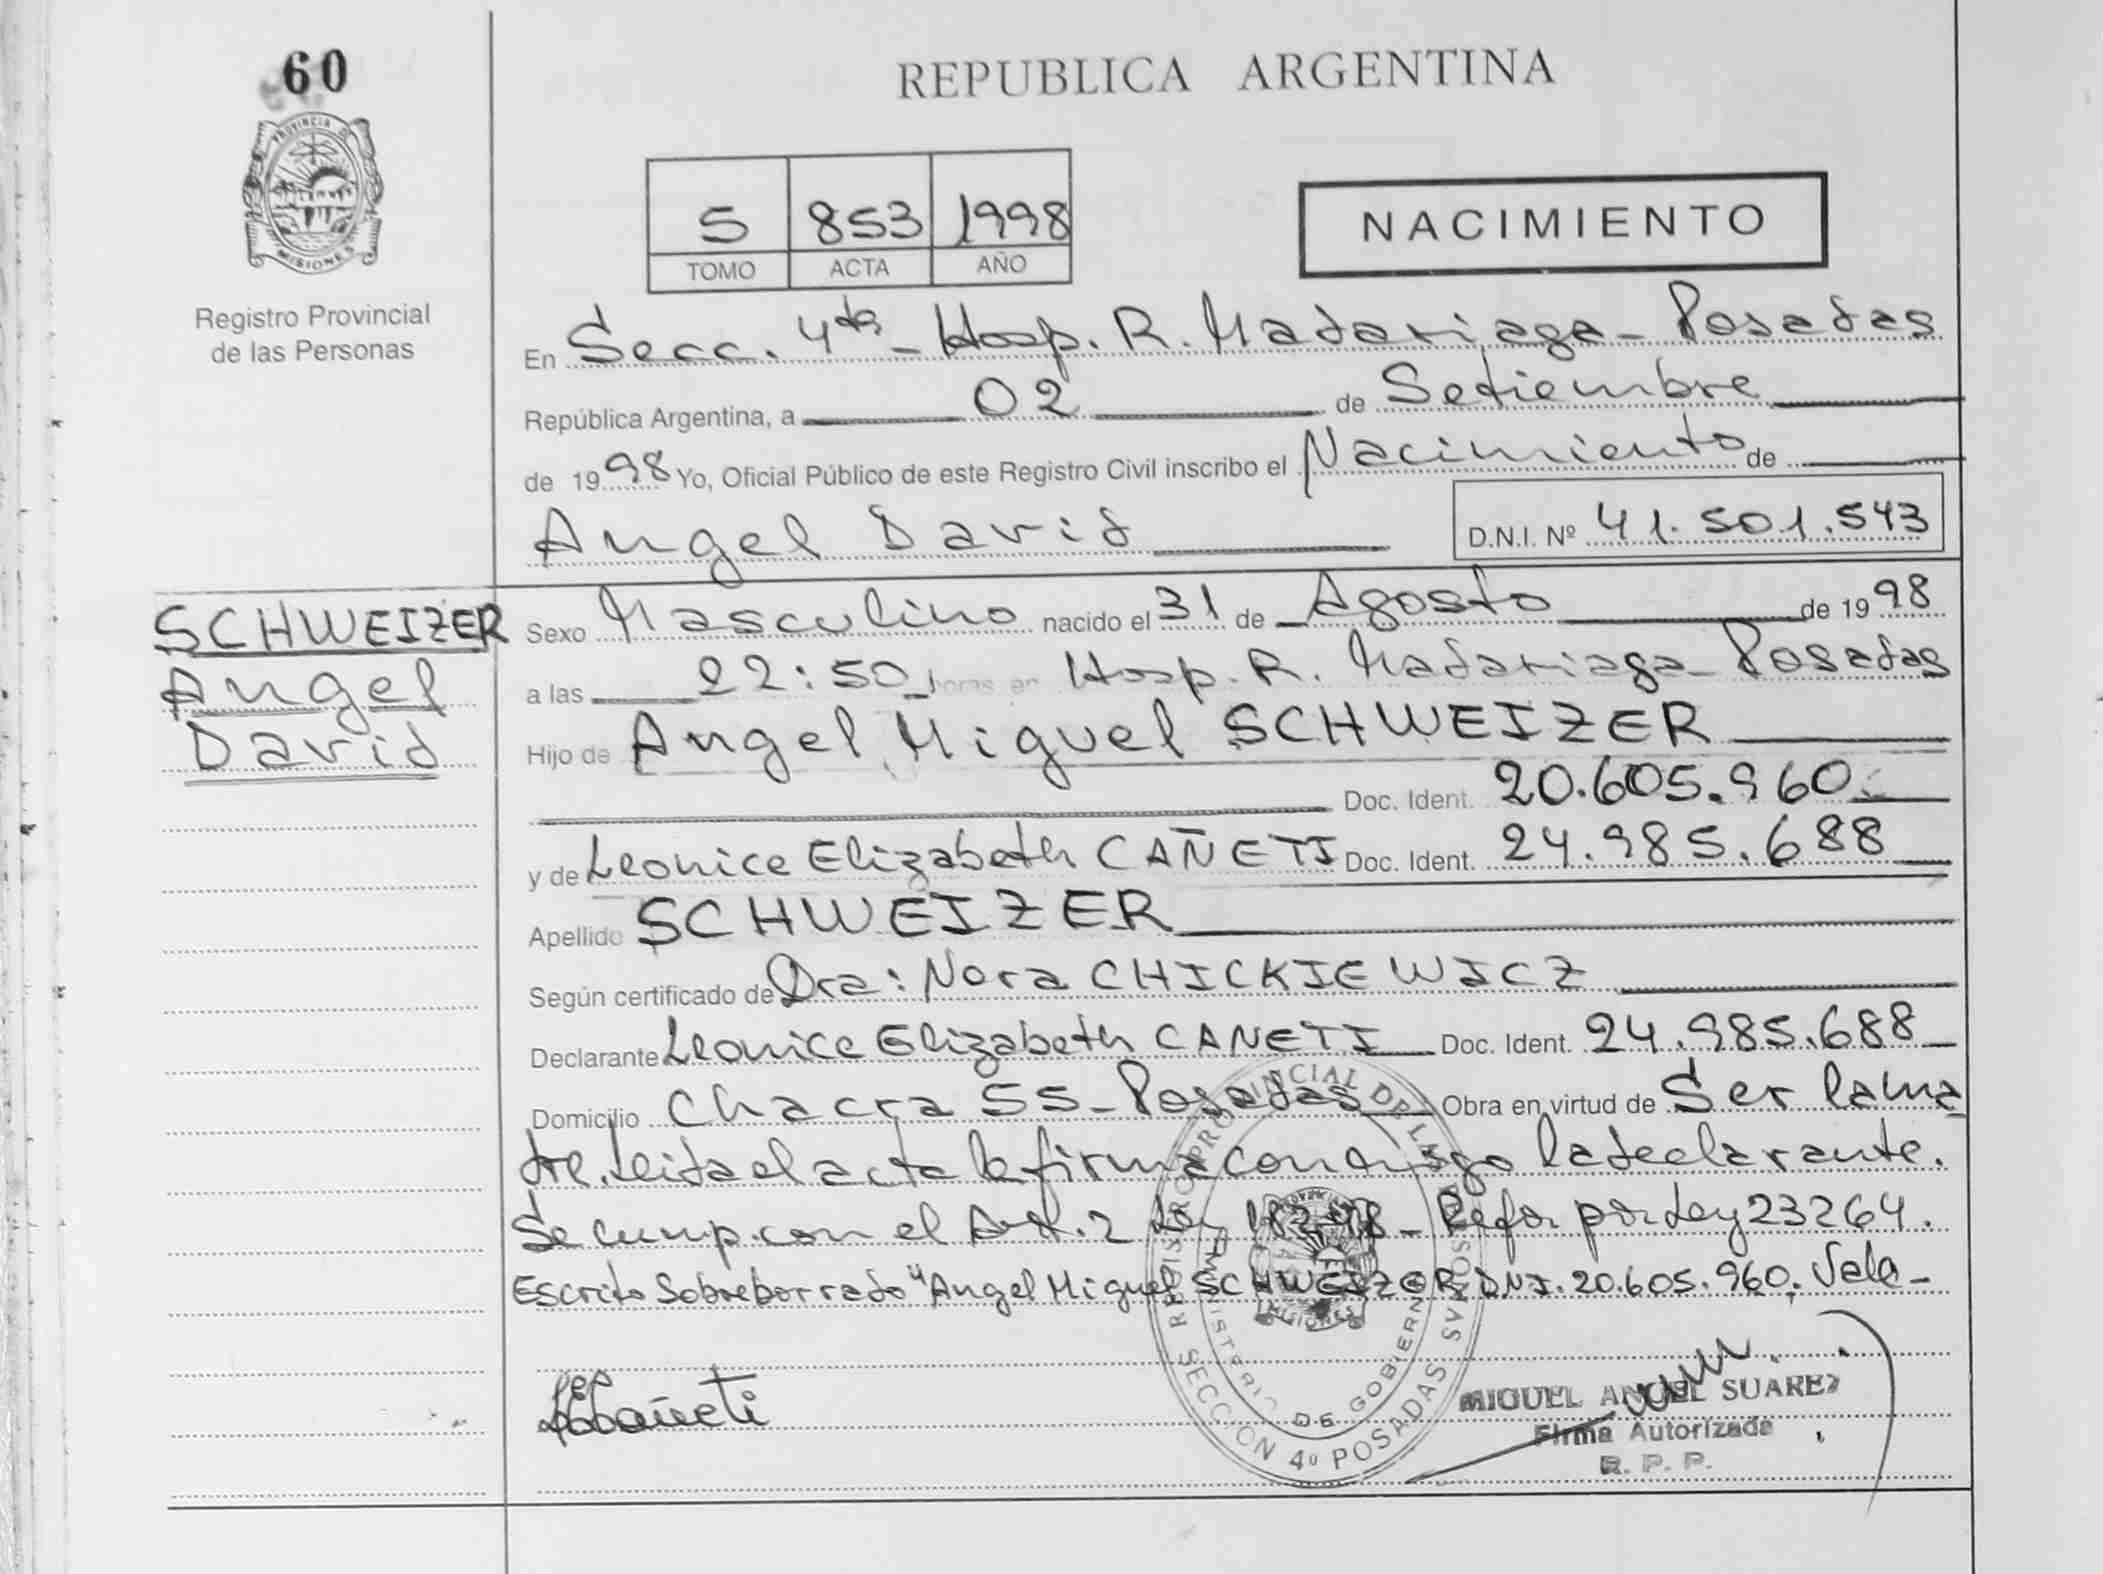 60
PROVINCIA DE
MISIONES
Registro Provincial
de las Personas
REPUBLICA ARGENTINA
5 853 1998
TOMO ACTA AÑO
NACIMIENTO
En Secc. 4ta - Hosp. R. Madariaga - Posadas
República Argentina, a 02 de Setiembre
de 1998 Yo, Oficial Público de este Registro Civil inscribo el Nacimiento de
Angel David
D.N.I. Nº 41.501.543
SCHWEIZER
Angel
David
Sexo Masculino nacido el 31 de Agosto de 1998
a las 22:50 horas en Hosp. R. Madariaga - Posadas
Hijo de Angel Miguel SCHWEIZER
Doc. Ident. 20.605.960
y de Leonice Elizabeth CAÑETI Doc. Ident. 24.985.688
Apellido SCHWEIZER
Según certificado de Dra: Nora CHICKIEWICZ
Declarante Leonice Elizabeth CAÑETI Doc. Ident. 24.985.688
Domicilio Chacra 55 - Posadas Obra en virtud de Ser la ma
dre. Leida el acta la firma conmigo la declarante.
Se cump. con el Art. 2 Ley 18248 - Refor por Ley 23264.
Escrito Sobreborrado "Angel Miguel SCHWEIZER DNI. 20.605.960. Vale -
REGISTRO PROVINCIAL DE LAS PERSONAS
MINISTERIO DE GOBIERNO
SECCION 4º POSADAS
MISIONES
Cañeti
MIGUEL ANGEL SUAREZ
Firma Autorizada
R. P. P.